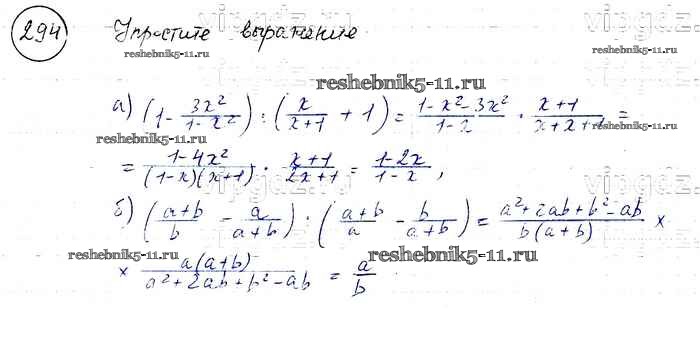 294 Упростите выражение.
reshebnik5-11.ru
reshebnik5-11.ru
а) (1 - 3x²/(1-x²)) : (x/(x+1) + 1) = (1-x²-3x²)/(1-x) · (x+1)/(x+x+1) =
reshebnik5-11.ru
= (1-4x²)/((1-x)(x+1)) · (x+1)/(2x+1) = (1-2x)/(1-x),
б) ((a+b)/b - a/(a+b)) : ((a+b)/a - b/(a+b)) = (a²+2ab+b²-ab)/(b(a+b)) ×
reshebnik5-11.ru
reshebnik5-11.ru
× a(a+b)/(a²+2ab+b²-ab) = a/b